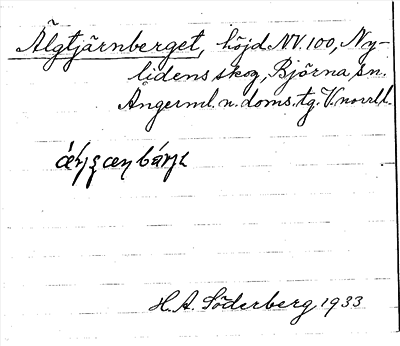 Älgtjärnberget, höjd NV. 100, Ny-
lidens skog, Björna sn.
Ångerml. n. doms. tg. V. norrl. l.
H. A. Söderberg 1933